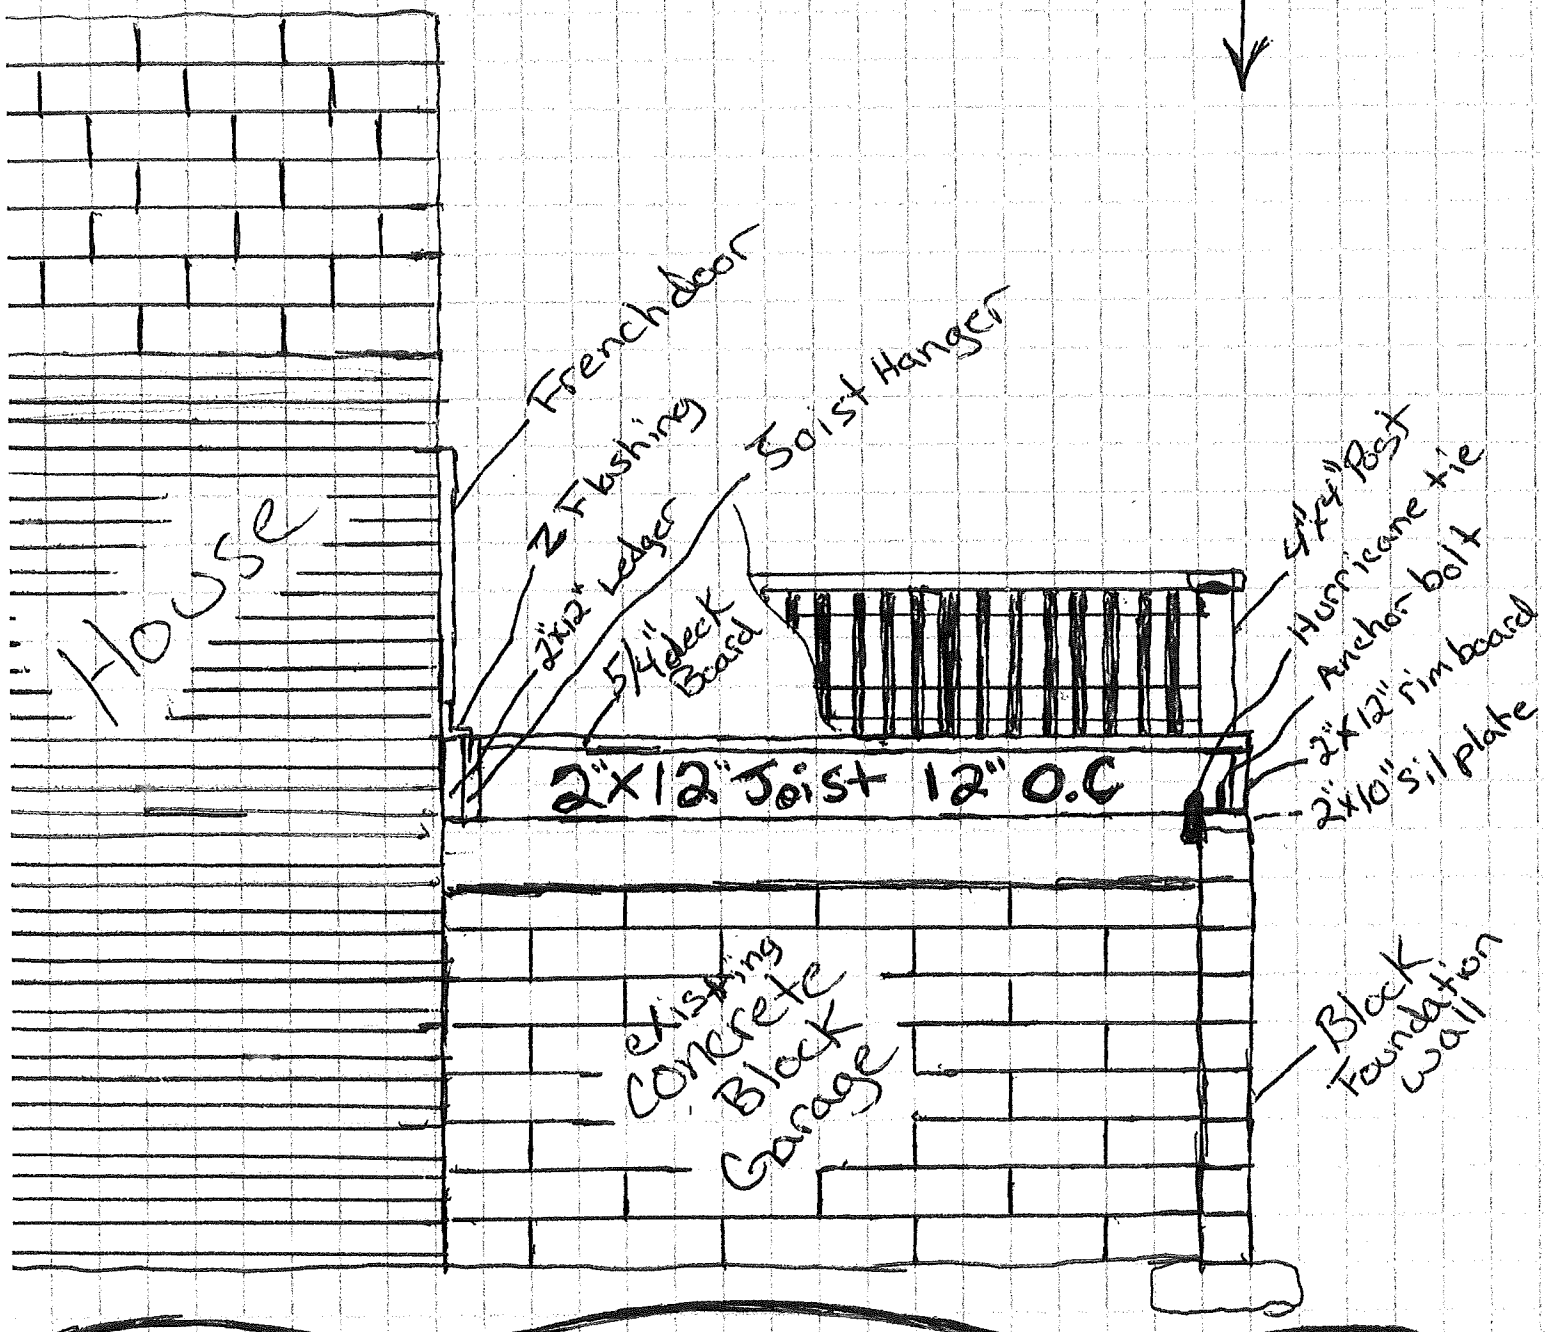 French door
Z Flashing
2"x12" Ledger
Joist Hanger
5/4" deck
Board
House
4"x4" Post
Hurricane tie
Anchor bolt
2"x12" rim board
2"x10" sil plate
2"x12" Joist 12" O.C
existing
Concrete
Block
Garage
Block
Foundation
Wall